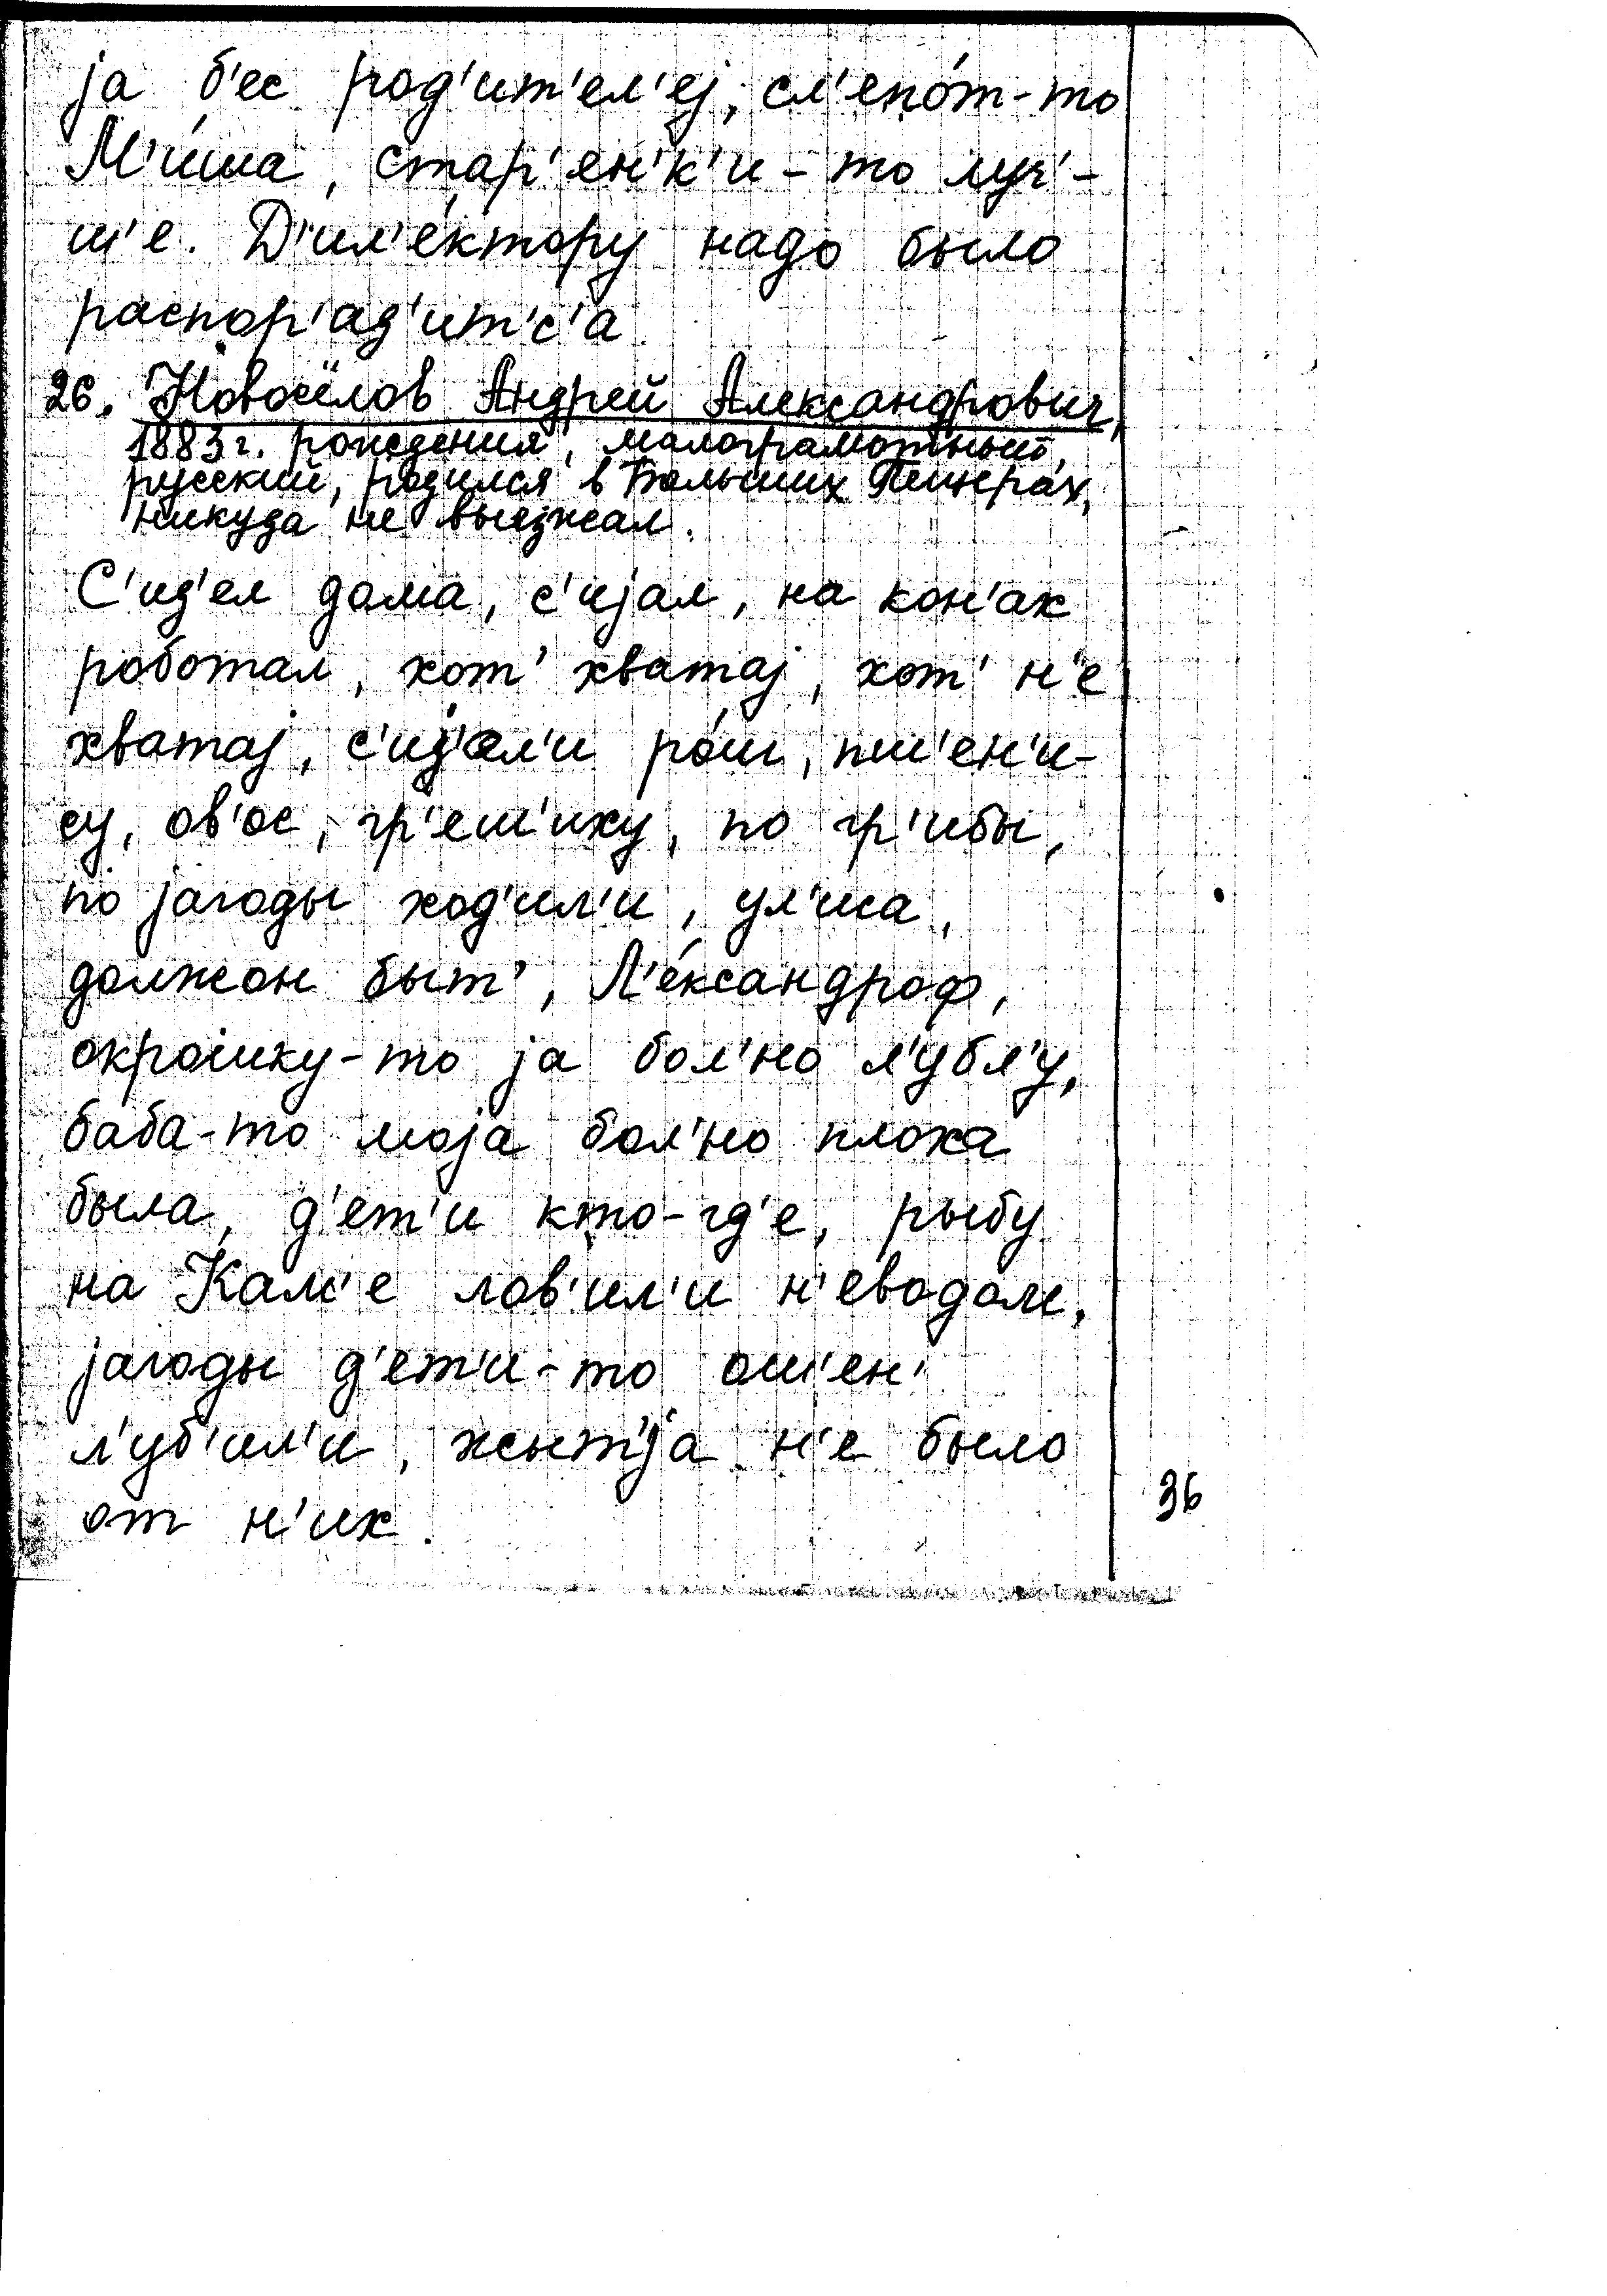 ја б'ес род'ит'ел'еј, сл'епо́т-то
М'иша, стар'ен'к'и-то луч'-
ш'е. Д'ил'е́ктору надо было
распор'ад'ит'с'а
26. Новосёлов Андрей Александрович,
1883 г. рождения, малограмотный,
русский, родился в Больших
никуда не выезжал.
С'ид'ел дома, с'ијал, на кон'ах
роботал, хот' хватај, хот' н'е
хватај, ро́ш, пш'ен'и-
су, ов'ос, гр'еш'иху, по гр'ибы,
по јагоды ход'ил'и, ул'иса,
должон быт', Л'е́ксандроф,
окрошку-то ја бол'но л'убл'у,
баба-то моја бол'но плоха
была, д'ет'и кто-гд'е, рыбу
на Кам'е лов'ил'и н'еводом,
јагоды д'ет'и-то ош'ен'
л'уб'ил'и, жыт'ја н'е было
от н'их.
36